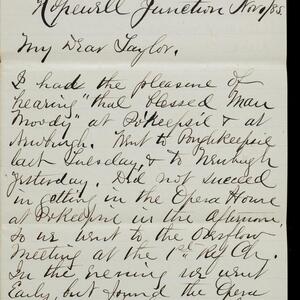 Hopewell Junction Nov 9/85
My Dear Taylor.
I had the pleasure of
hearing "that blessed Man
Moody" at Po'Keepsie & at
Newburgh. Went to Poughkeepsie
last Tuesday, & to Newburgh
yesterday. Did not succeed
in getting in the Opera House
at Po'Keepsie in the afternoon,
so we went to the Overflow
Meeting at the 1st Ref Ch.
In the evening we went
Early, but found the Opera